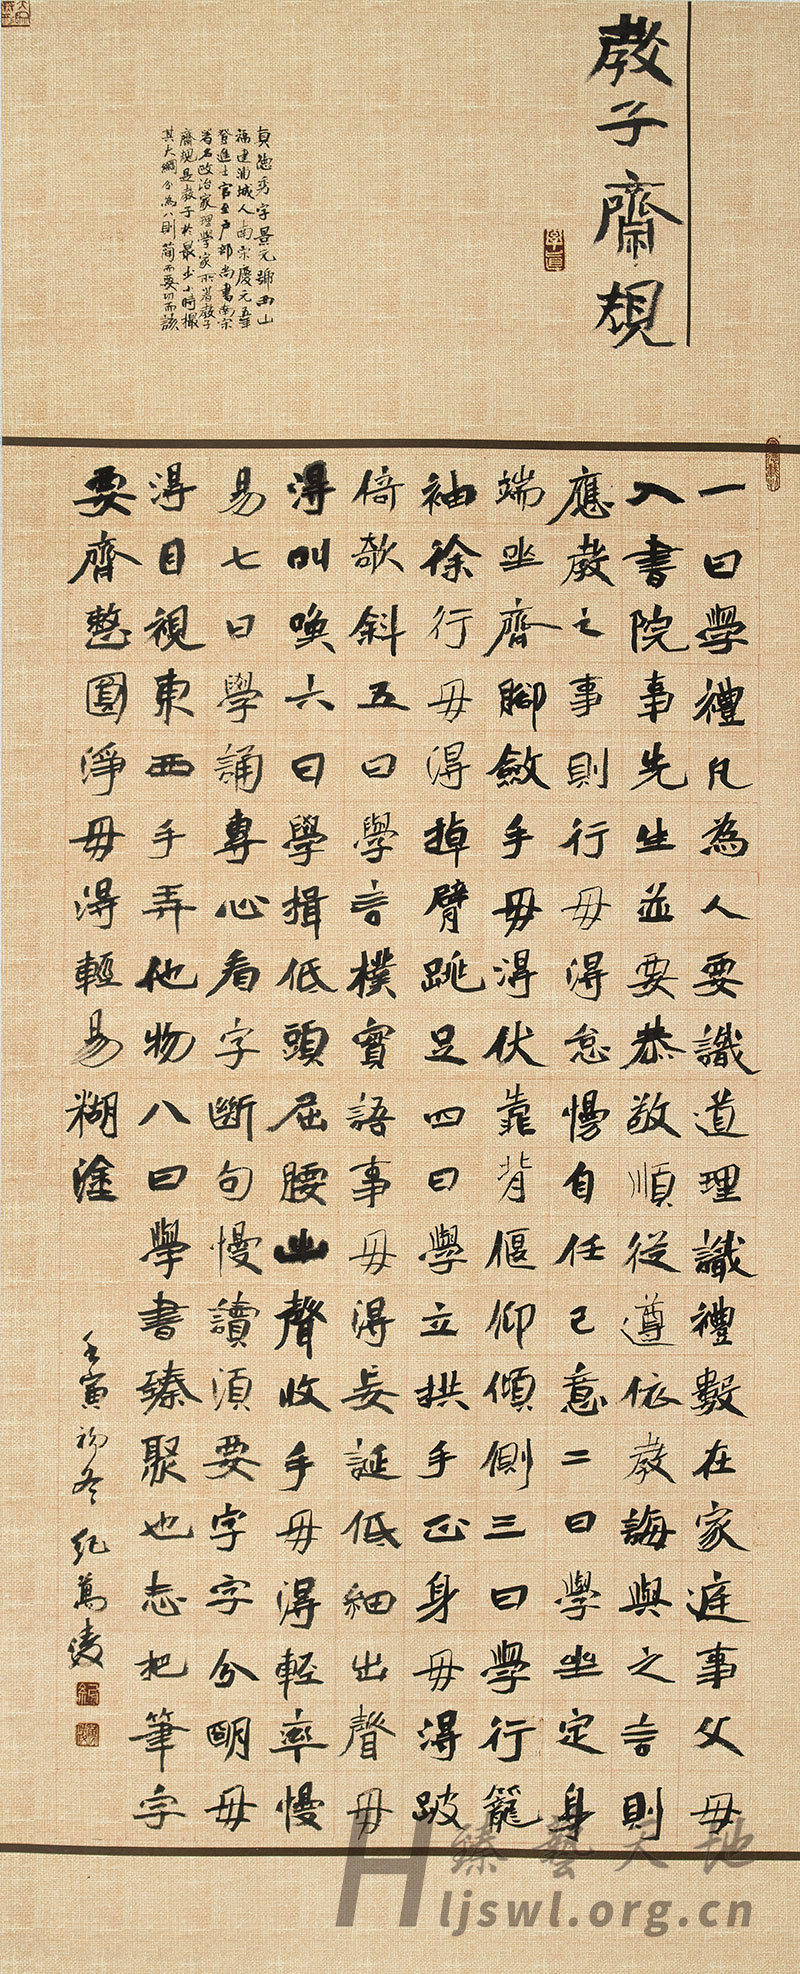 教子齋規
真德秀字景元號西山
福建浦城人南宋慶元五年
登進士官至戶部尚書南宋
著名政治家理學家所著教子
齋規是教子於最少小時撮
其大綱分為八則簡而要切而該
一曰學禮凡為人要識道理識禮數在家庭事父母
入書院事先生並要恭敬順從遵依教誨與之言則
應教之事則行毋得怠慢自任己意二曰學坐定身
端坐齊腳斂手毋得伏靠背偃仰傾側三曰學行籠
袖徐行毋得掉臂跳足四曰學立拱手正身毋得跛
倚欹斜五曰學言樸實語事毋得妄誕低細出聲毋
得叫喚六曰學揖低頭屈腰出聲收手毋得輕率慢
易七曰學誦專心看字斷句慢讀須要字字分明毋
得目視東西手弄他物八曰學書臻聚也志把筆字
要齊整圓淨毋得輕易糊塗
壬寅初冬紀萬
臻藝天地
Hljswl.org.cn